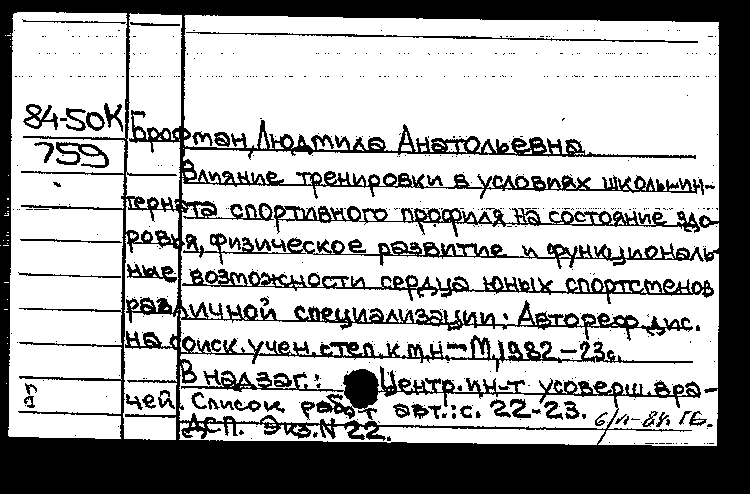 84-50К
759
Брофман, Людмила Анатольевна.
Влияние тренировки в условиях школы-ин-
терната спортивного профиля на состояние здо-
ровья, физическое развитие и функциональ-
ные возможности сердца юных спортсменов
различной специализации: Автореф. дис.
на соиск. учен. степ. к.м.н. — М, 1982 — 23с.
В надзаг.: Центр. ин-т усоверш. вра-
чей. Список работ авт.: с. 22-23.
ДСП. Экз. N 22.
6/п-84. ГБ.